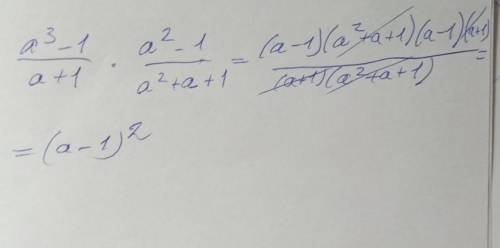 (a³-1)/(a+1) · (a²-1)/(a²+a+1) = ((a-1)(a²+a+1)(a-1)(a+1))/((a+1)(a²+a+1)) =
= (a-1)²